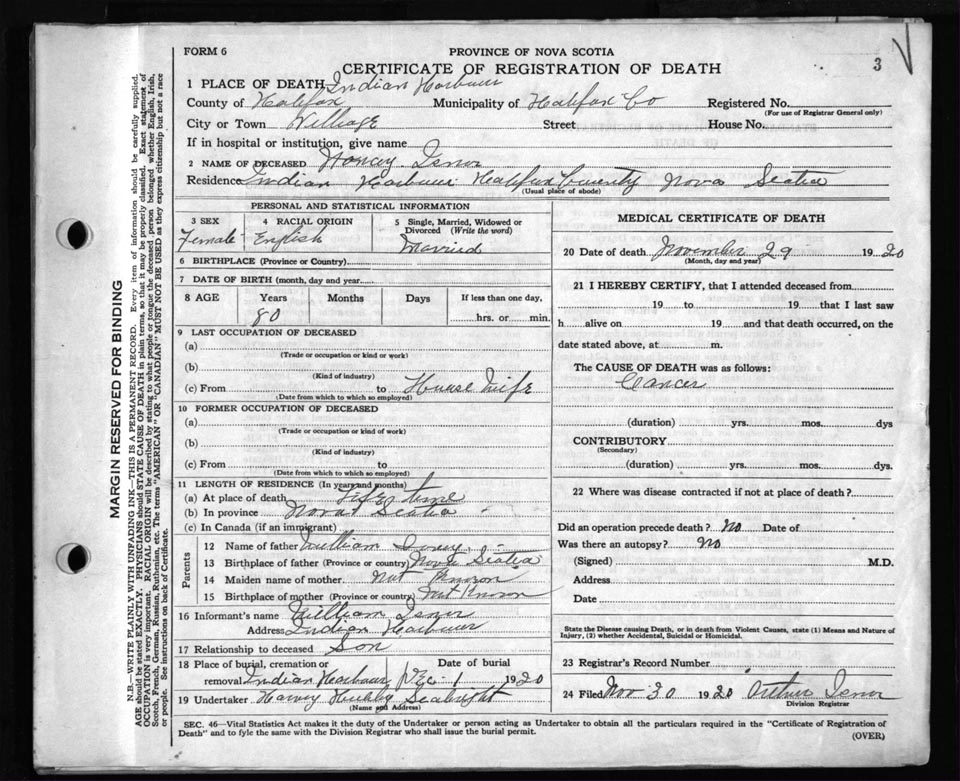 FORM 6
PROVINCE OF NOVA SCOTIA
CERTIFICATE OF REGISTRATION OF DEATH
3
1 PLACE OF DEATH Indian Harbour
County of Halifax Municipality of Halifax Co Registered No.
(For use of Registrar General only)
City or Town Village Street House No.
If in hospital or institution, give name
2 NAME OF DECEASED Nancy Isnor
Residence Indian Harbour Halifax County Nova Scotia
(Usual place of abode)
PERSONAL AND STATISTICAL INFORMATION
3 SEX Female
4 RACIAL ORIGIN English
5 Single, Married, Widowed or Divorced (Write the word) Married
6 BIRTHPLACE (Province or Country)
7 DATE OF BIRTH (month, day and year
8 AGE Years 80 Months Days If less than one day,
hrs. or min.
9 LAST OCCUPATION OF DECEASED
(a)
(Trade or occupation or kind or work)
(b)
(Kind of industry)
(c) From to House Wife
(Date from which to which so employed)
10 FORMER OCCUPATION OF DECEASED
(a)
(Trade or occupation or kind of work)
(b)
(Kind of industry)
(c) From to
(Date from which to which so employed)
11 LENGTH OF RESIDENCE (In years and months)
(a) At place of death Life time
(b) In province Nova Scotia
(c) In Canada (if an immigrant)
Parents
12 Name of father William
13 Birthplace of father (Province or country) Nova Scotia
14 Maiden name of mother Not Known
15 Birthplace of mother (Province or country) Not Known
16 Informant's name William Isnor
Address Indian Harbour
17 Relationship to deceased Son
18 Place of burial, cremation or Date of burial
removal Indian Harbour Dec 1 1920
19 Undertaker Harvey Hubley Seabright
(Name and Address)
MEDICAL CERTIFICATE OF DEATH
20 Date of death November 29 1920
(Month, day and year)
21 I HEREBY CERTIFY, that I attended deceased from
19 to 19 that I last saw
h alive on 19 and that death occurred, on the
date stated above, at m.
The CAUSE OF DEATH was as follows:
Cancer
(duration) yrs. mos. dys
CONTRIBUTORY
(Secondary)
(duration) yrs. mos. dys.
22 Where was disease contracted if not at place of death?
Did an operation precede death? No Date of
Was there an autopsy? No
(Signed) M.D.
Address
Date
State the Disease causing Death, or in death from Violent Causes, state (1) Means and Nature of
Injury, (2) whether Accidental, Suicidal or Homicidal.
23 Registrar's Record Number
24 Filed Nov 30 1920 Arthur Isnor
Division Registrar
SEC. 46—Vital Statistics Act makes it the duty of the Undertaker or person acting as Undertaker to obtain all the particulars required in the "Certificate of Registration of
Death" and to fyle the same with the Division Registrar who shall issue the burial permit.
(OVER)
MARGIN RESERVED FOR BINDING
N.B.—WRITE PLAINLY WITH UNFADING INK—THIS IS A PERMANENT RECORD. Every item of information should be carefully supplied.
AGE should be stated EXACTLY. PHYSICIANS should STATE CAUSE OF DEATH in plain terms, so that it may be properly classified. Exact statement of
OCCUPATION is very important. RACIAL ORIGIN will be described by stating to what people or tongue the deceased person belonged whether English, Irish,
Scotch, French, German, Russian, Ruthenian, etc. The terms "AMERICAN" or "CANADIAN" MUST NOT BE USED as they express citizenship but not a race
or people. See instructions on back of Certificate.